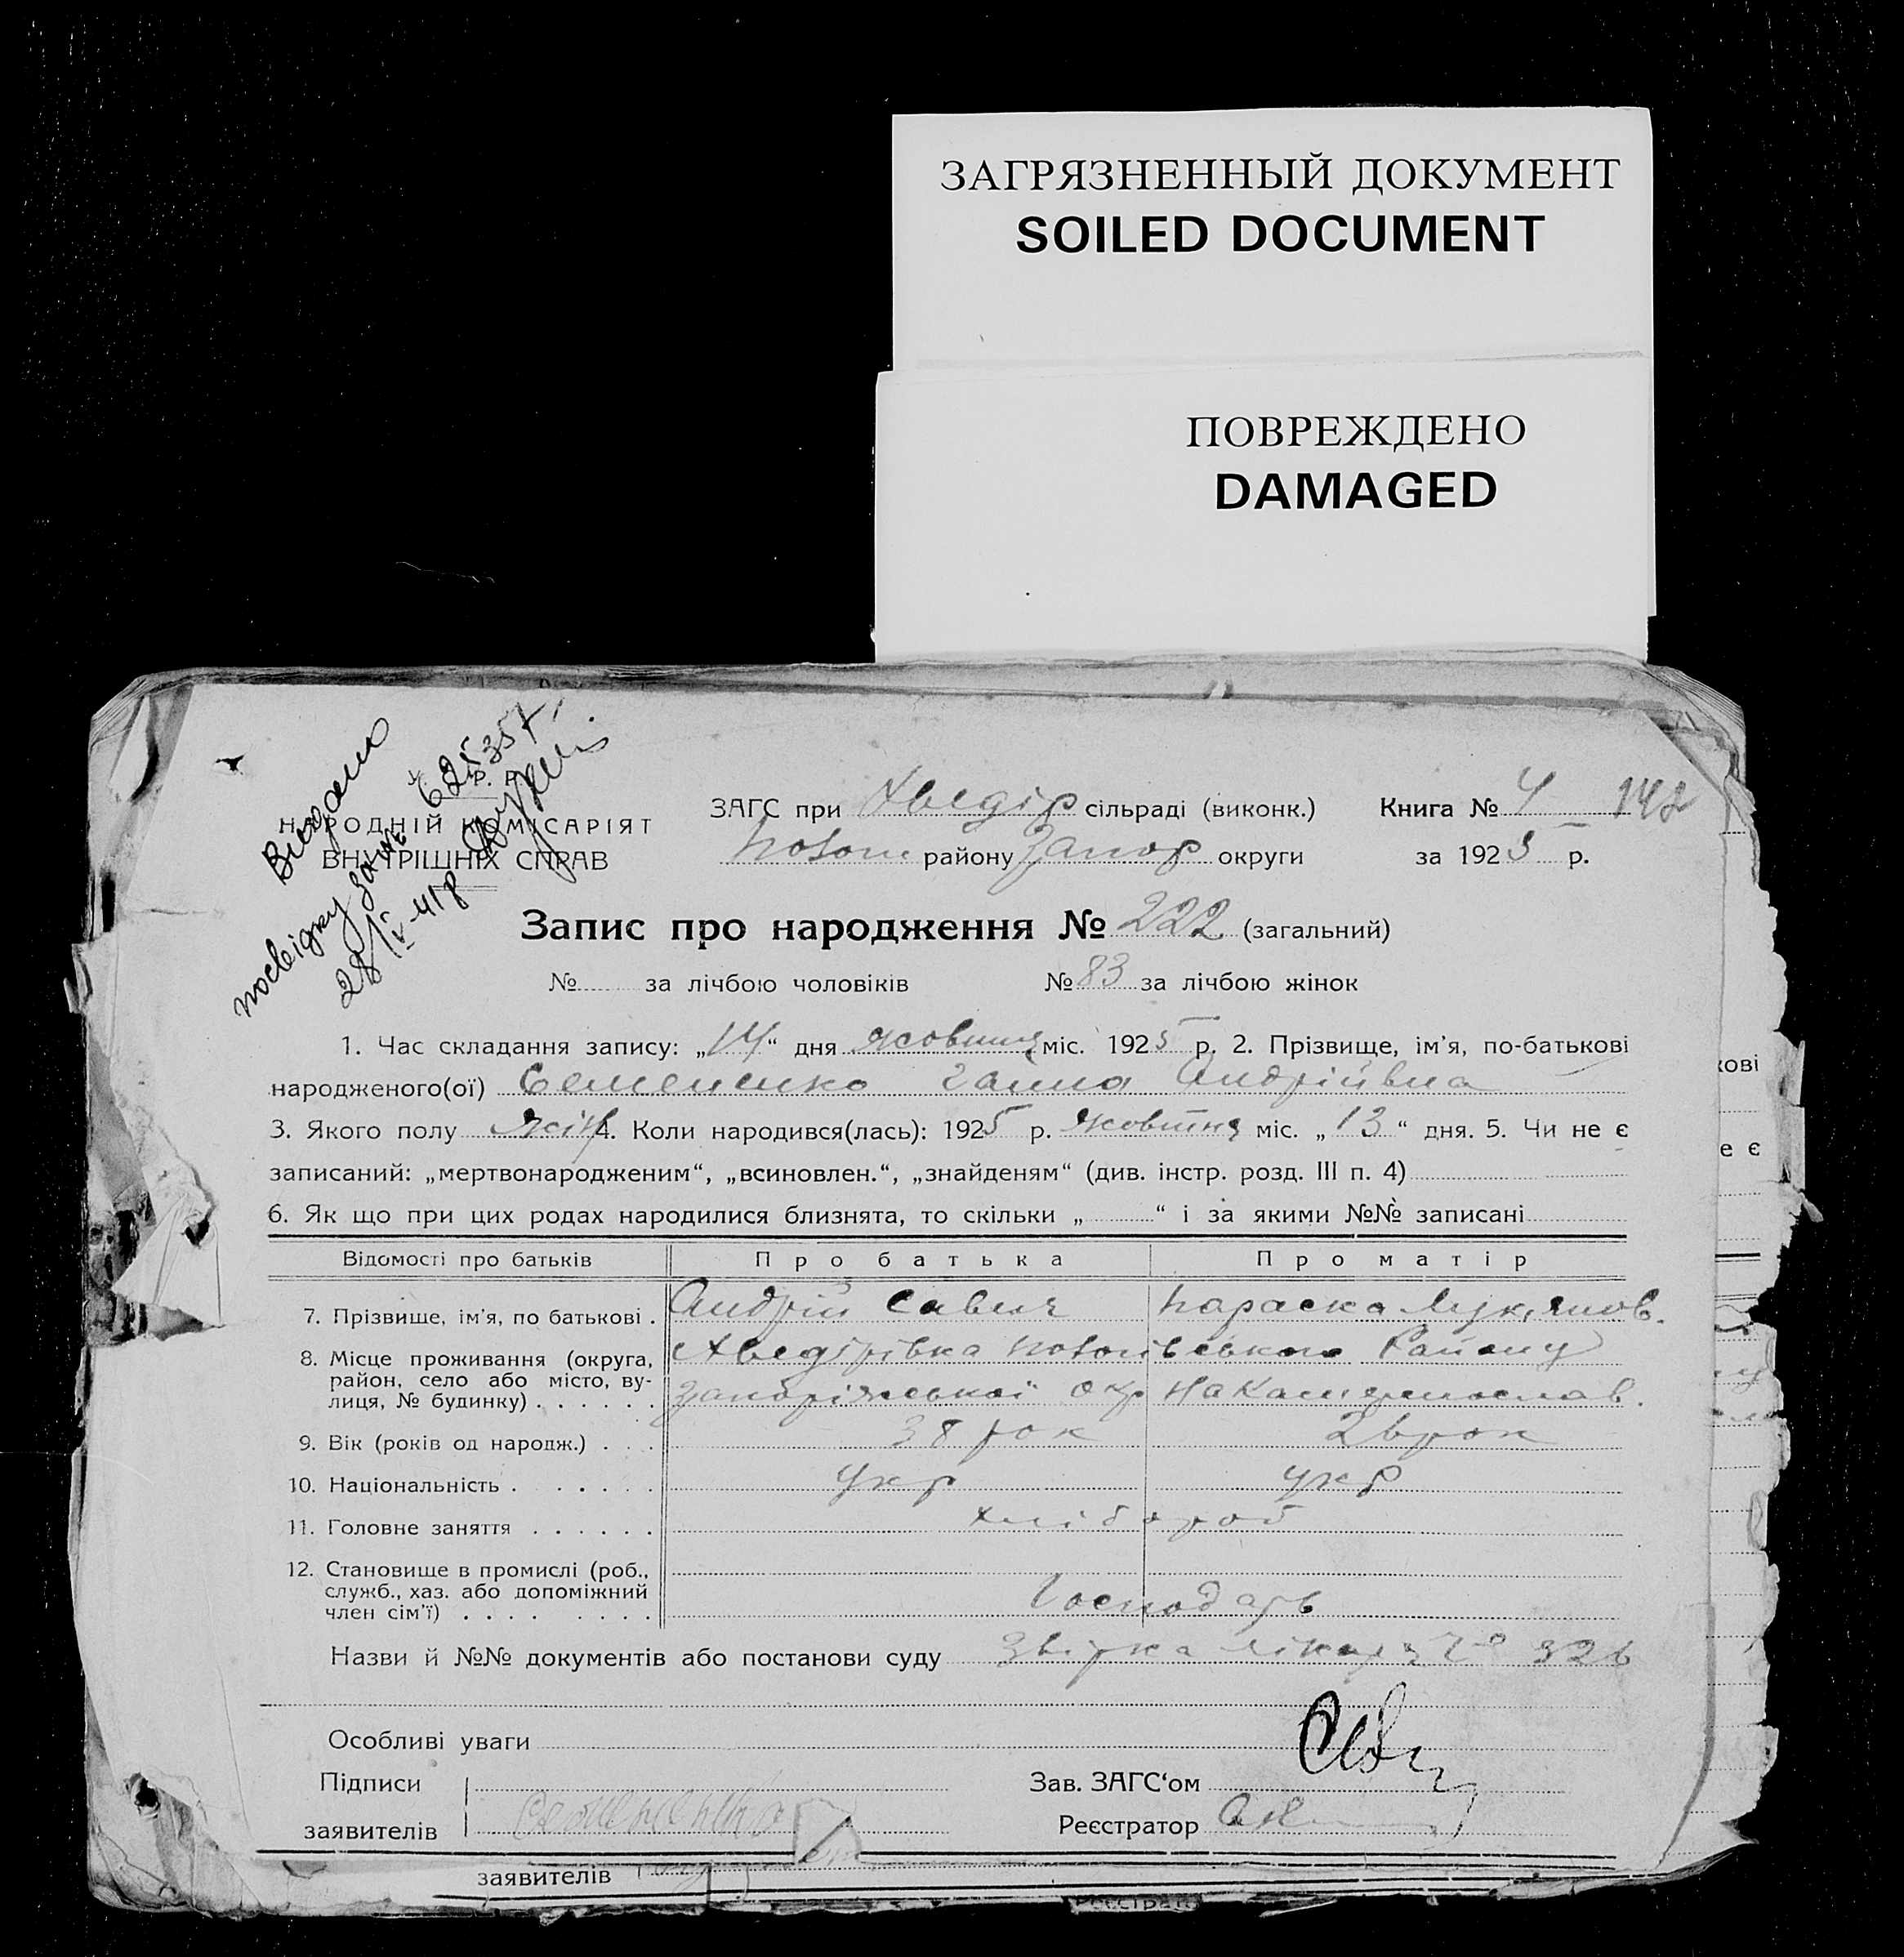 ЗАГРЯЗНЕННЫЙ ДОКУМЕНТ
SOILED DOCUMENT
ПОВРЕЖДЕНО
DAMAGED
Видано
посвідку за №
28/IV-41р
НАРОДНІЙ КОМІСАРІЯТ
ВНУТРІШНІХ СПРАВ
ЗАГС при Хведір сільраді (виконк.) Книга № 4 142
району Запор округи за 1925 р.
Запис про народження № 222 (загальний)
№ за лічбою чоловіків № 83 за лічбою жінок
1. Час складання запису: „14“ дня жовтня міс. 1925 р. 2. Прізвище, ім'я, по-батькові
народженого(ої) Семененко Ганна Андрійвна
3. Якого полу жін 4. Коли народився(лась): 1925 р. жовтня міс. „13“ дня. 5. Чи не є
записаний: „мертвонародженим“, „всиновлен.“, „знайденям“ (див. інстр. розд. III п. 4)
6. Як що при цих родах народилися близнята, то скільки „ “ і за якими №№ записані
Відомості про батьків Про батька Про матір
7. Прізвище, ім'я, по батькові . Андрій Савич Параска Лукянов.
8. Місце проживання (округа, Хведірівка районну
район, село або місто, ву- Запоріжської окр
лиця, № будинку) . . . . . .
9. Вік (років од народж.) . . . 38 рок 26 рок
10. Національність . . . . . . укр укр
11. Головне заняття . . . . . . хлібороб
12. Становище в промислі (роб.,
служб., хаз. або допоміжний
член сім'ї) . . . . . . . . Господарь
Назви й №№ документів або постанови суду лікаря № 326
Особливі уваги
Підписи Зав. ЗАГС'ом
заявителів Семененко Реєстратор
заявителів